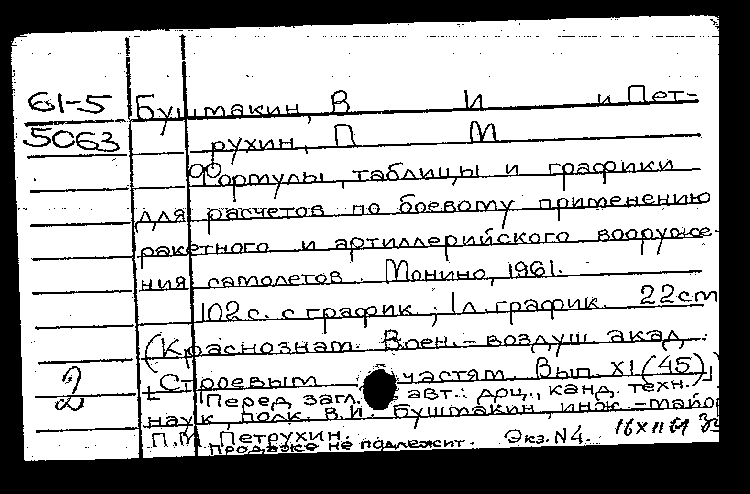 61-5 Буштакин, В И и Пет-
5063 рухин, П М
Формулы, таблицы и графики
для расчетов по боевому применению
ракетного и артиллерийского вооруже-
ния самолетов. Монино, 1961.
102 с. с график.; 1 л. график. 22см
(Краснознам. Воен.-воздуш. акад.
Строевым частям. Вып. XI (45)
2 Перед загл. авт.: доц., канд. техн.
наук, полк. В.И. Буштакин, инж.-майор
П.М. Петрухин.
Продаже не подлежит. Экз. N4.